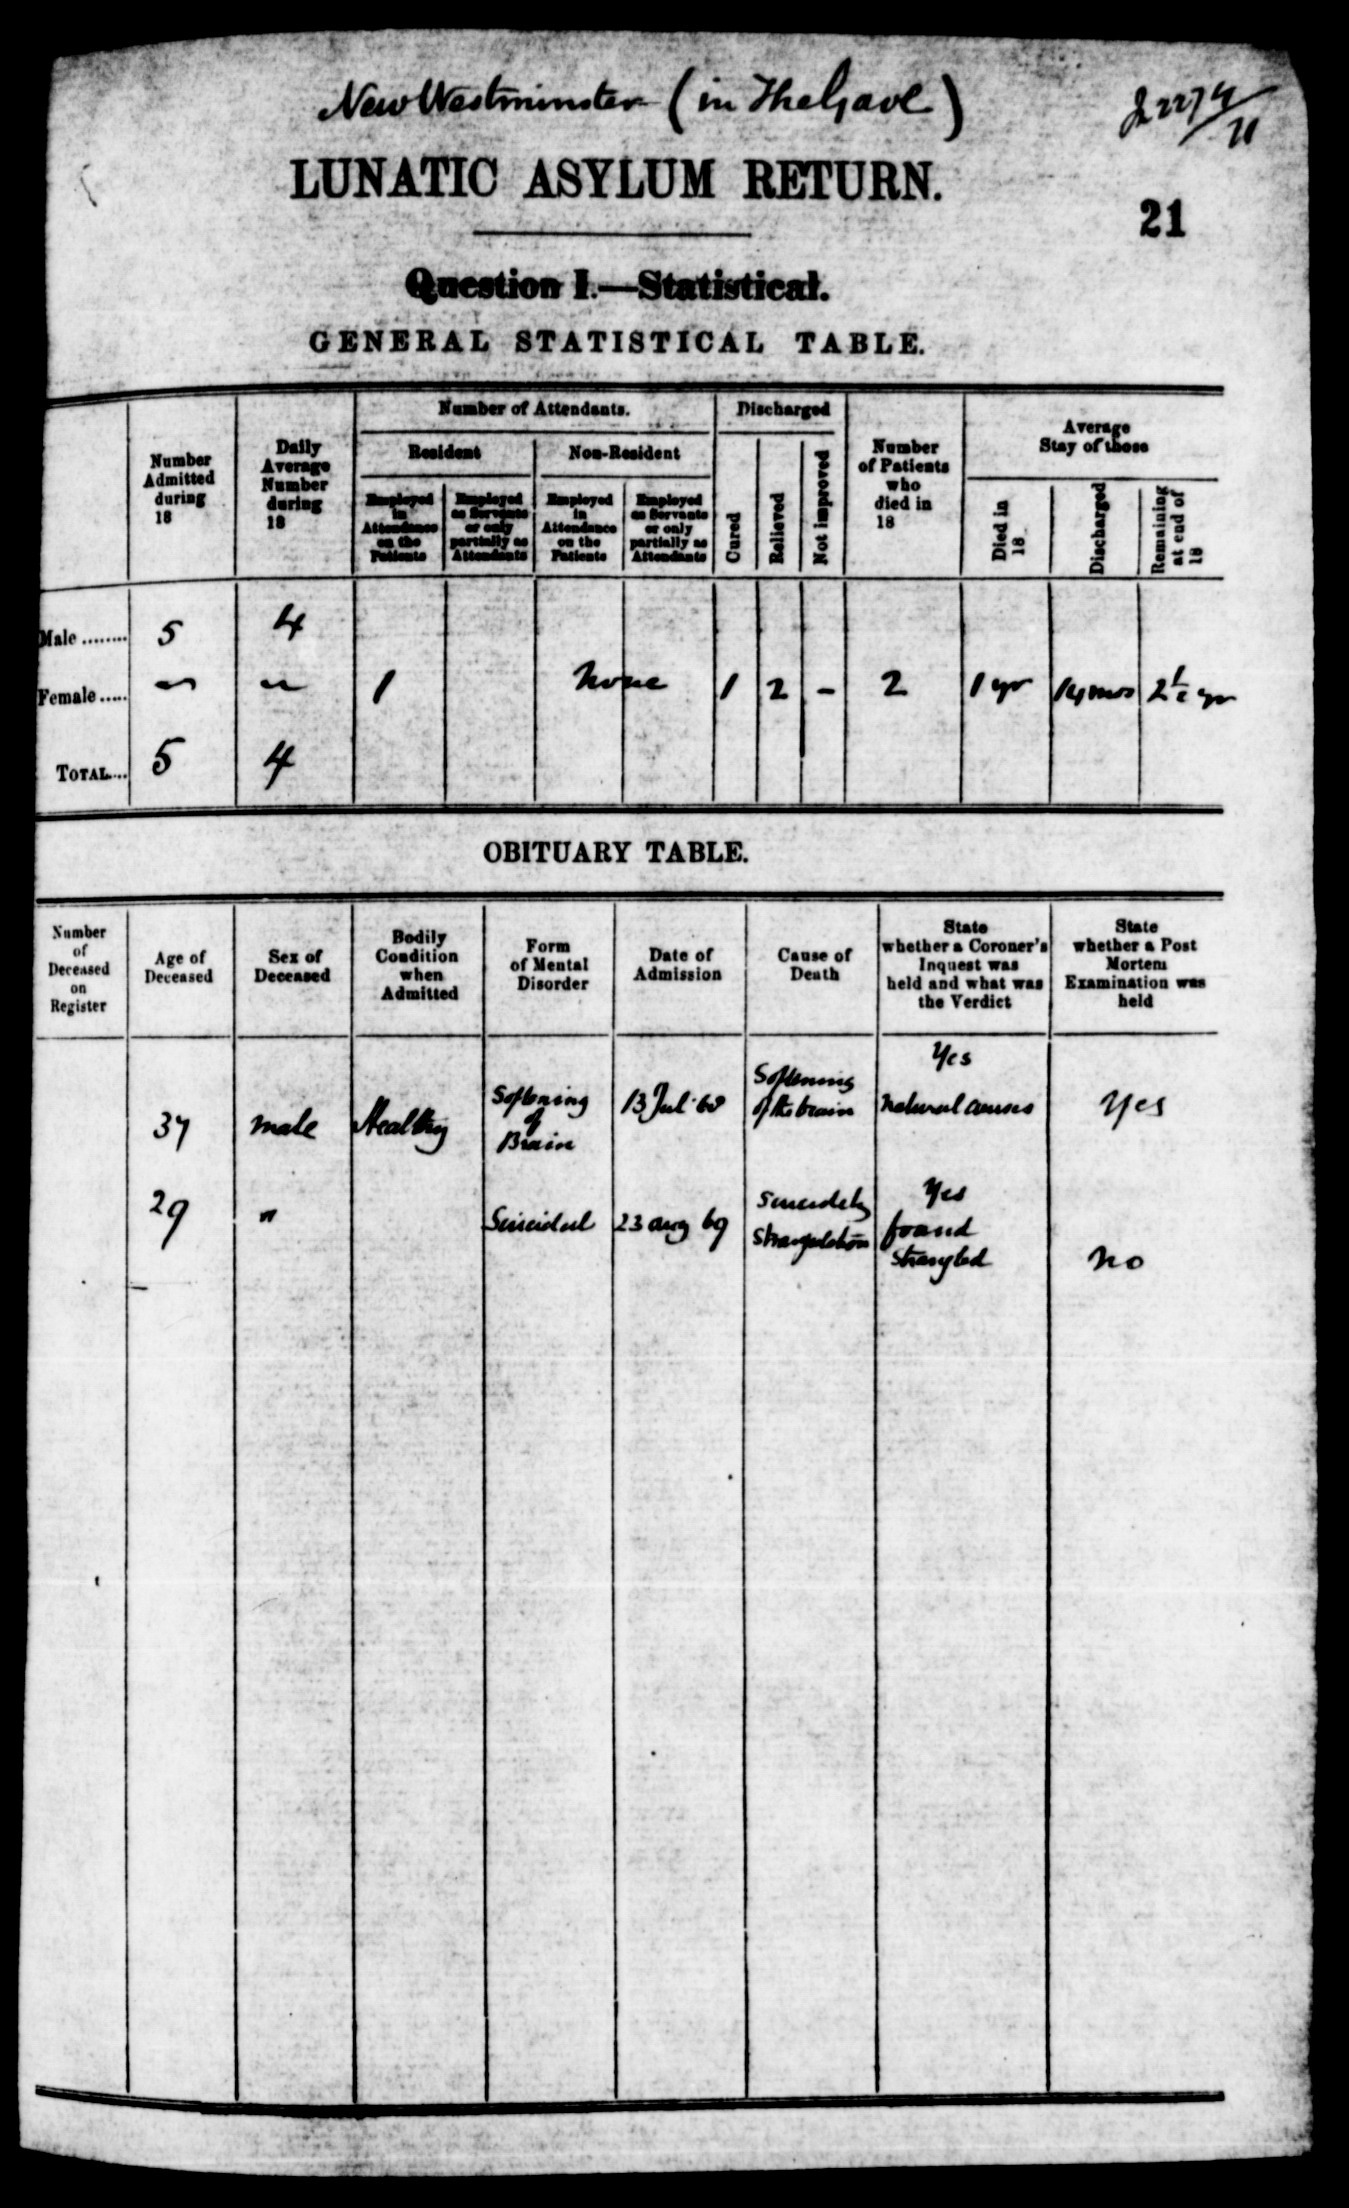 New Westminster (in The Gaol)
LUNATIC ASYLUM RETURN.
21
Question I.—Statistical.
GENERAL STATISTICAL TABLE.
Number Admitted during 18
Daily Average Number during 18
Number of Attendants.
Resident
Employed in Attendance on the Patients
Employed as Servants or only partially as Attendants
Non-Resident
Employed in Attendance on the Patients
Employed as Servants or only partially as Attendants
Discharged
Cured
Relieved
Not improved
Number of Patients who died in 18
Average Stay of those
Died in 18
Discharged
Remaining at end of 18
Male ........ 5 4
Female ..... 1 None 1 2 - 2 1 yr 14 mos 2½ yr
TOTAL.... 5 4
OBITUARY TABLE.
Number of Deceased on Register
Age of Deceased
Sex of Deceased
Bodily Condition when Admitted
Form of Mental Disorder
Date of Admission
Cause of Death
State whether a Coroner's Inquest was held and what was the Verdict
State whether a Post Mortem Examination was held
37 male Healthy Softening of Brain 13 Jul 68 Softening of the brain Yes natural causes Yes
29 " Suicidal 23 aug 69 strangulation Yes found strangled No